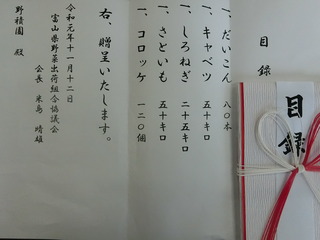 目録
一、だいこん 八〇本
一、キャベツ 五十キロ
一、しろねぎ 二十五キロ
一、さといも 五十キロ
一、コロッケ 一二〇個
右、贈呈いたします。
令和元年十一月十二日
富山県野菜出荷組合協議会
会長 米島 晴雄
野積園 殿
目録